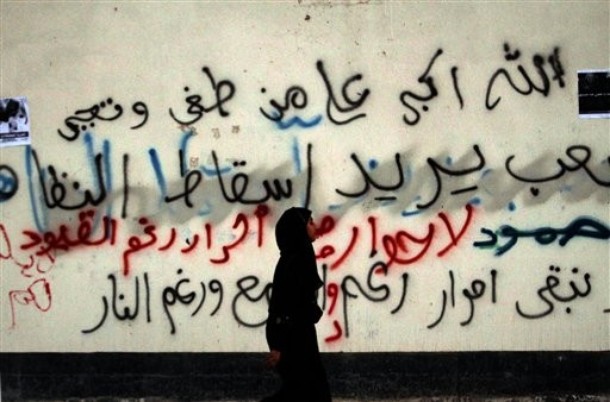 الله اكبر على من طغى وتجبر
شعب يريد إسقاط النظا
صمود لا حوار احرار رغم القيود
ونبقى احرار رغم ورغم النار